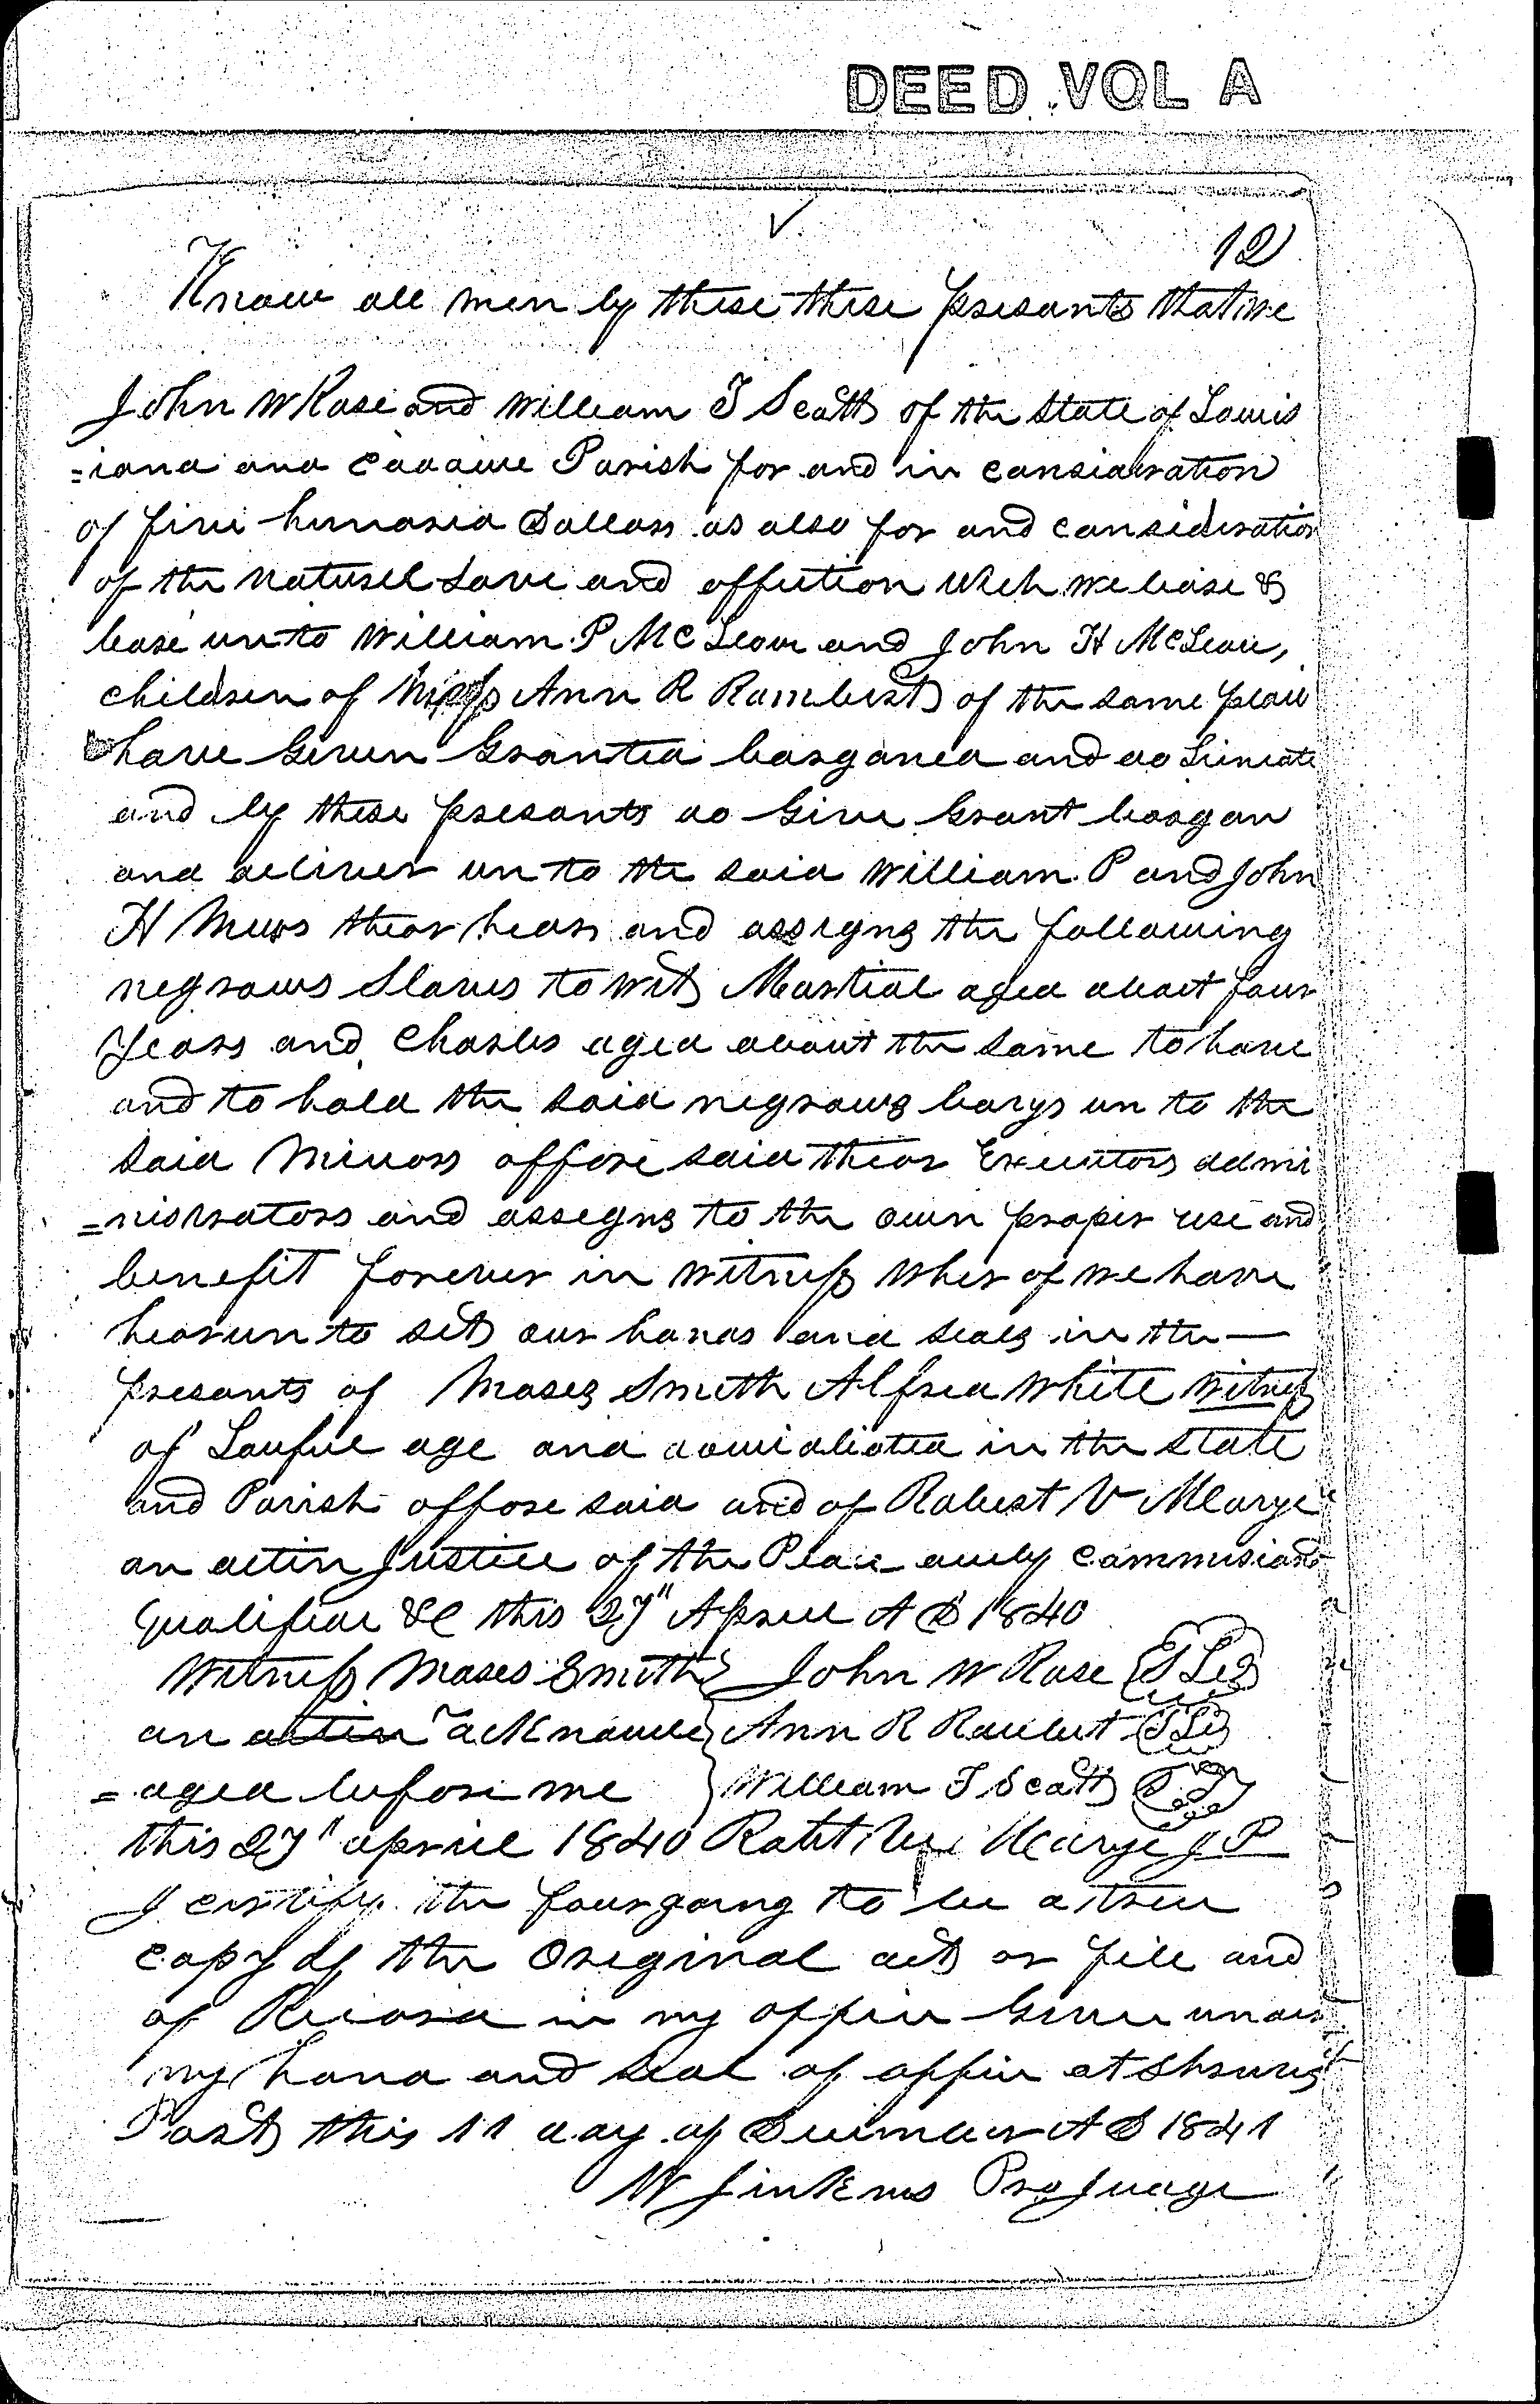 DEED VOL A
12
Know all men by these these presants that we
John W Rose and William T Scott of the State of Louis
=iana and Caddoue Parish for and in consideration
of five hundred Dollars as also for and consideration
of the naturel Love and affection which we bare &
bare unto William P McLean and John H McLean,
children of Ann R Rambert of the same place
have Given Granted bargained and do
and by these presants do Give Grant bargan
and deliver unto the said William P and John
H theor hears and assigns the following
negrows Slaves to wit Martial aged about four
years and Charles aged about the same to have
and to hold the said negrows boys un to the
said Minors affore said theor Executors admi
=nistrators and assigns to the own proper use and
benefit forever in witness wher of we have
hearunto set our hands and seals in the —
presants of Moses Smith Alfred White witness
of Lawful age and domicaliated in the state
and Parish affore said and of Robert V Marye
an actin Justice of the Peace duly commisiond
qualified &c this 27" April A D 1840
Witness Moses Smith } John W Rose
an actin acknowle } Ann R Rambert
=dged before me } William T Scott
this 27" april 1840 Marye J P
I certify the fourgoing to be a true
copy of the Original act on file and
of Record in my office Given under
my hand and Seal of office at Shreves
Port this 11 day of December A D 1841
W Jinkens Pro Judge